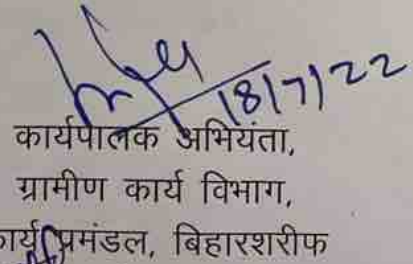 18/7/22
कार्यपालक अभियंता,
ग्रामीण कार्य विभाग,
कार्य प्रमंडल, बिहारशरीफ